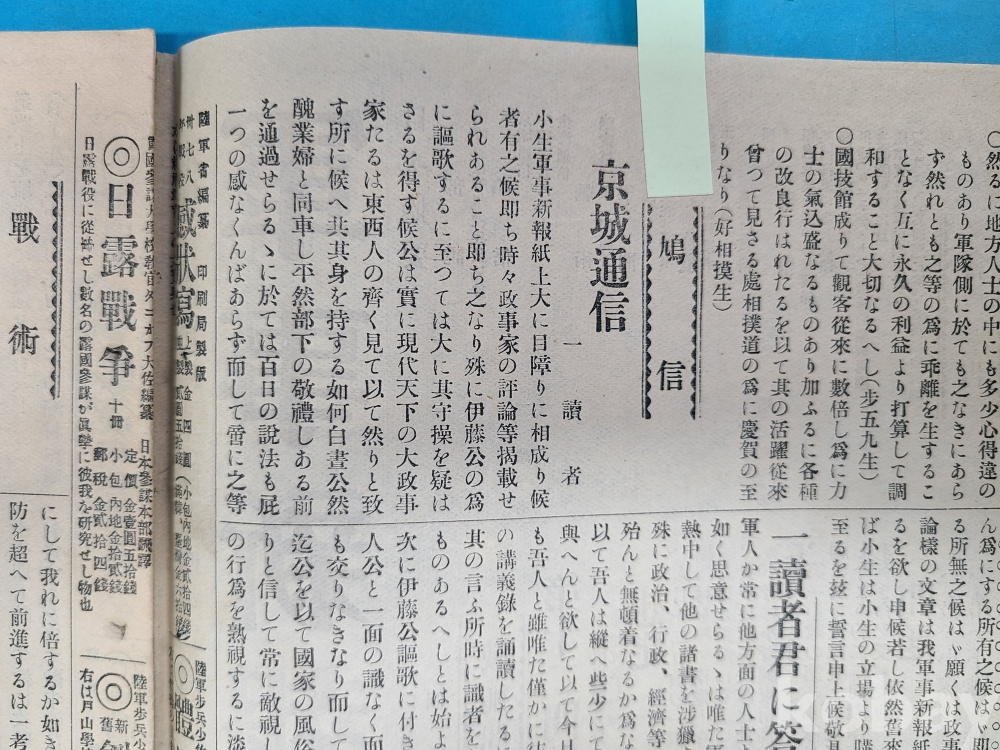 〇然るに地方人士の中にも多少心得違の
ものあり軍隊側に於ても之なきにあら
ず然れとも之等の爲に乖離を生するこ
となく互に永久の利益より打算して調
和すること大切なるへし(步五九生)
〇國技館成りて觀客從來に數倍し爲に力
士の氣込盛なるものあり加ふるに各種
の改良行はれたるを以て其の活躍從來
曾つて見さる處相撲道の爲に慶賀の至
りなり(好相撲生)
鳩信
京城通信
一讀者
小生軍事新報紙上大に目障りに相成り候
者有之候即ち時々政事家の評論等揭載せ
られあること即ち之なり殊に伊藤公の爲
に謳歌するに至つては大に其守操を疑は
さるを得す候公は實に現代天下の大政事
家たるは東西人の齊く見て以て然りと致
す所に候へ共其身を持する如何白晝公然
醜業婦と同車し平然部下の敬禮しある前
を通過せらるゝに於ては百日の說法も屁
一つの感なくんばあらず而して啻に之等
ん爲にする所有之候は
る所無之候はゞ願くは政事
論樣の文章は我軍事新報紙
るを欲し申候若し依然舊來
ば小生は小生の立場より購
至るを玆に誓言申上候敬具
一讀者君に答
軍人か常に他方面の人士
如く思意せらるゝは唯た軍
熱中して他の諸書を涉獵
殊に政治、行政、經濟等
殆んと無頓着なるか爲な
以て吾人は縱へ些少にて
與へんと欲して以て今日
も吾人と雖唯た僅かに
の講義錄を誦讀したる
其の言ふ所時に識者を
ものあるへしとは始よ
次に伊藤公謳歌に付き
人公と一面の識なく面
も交りなきなり而して
迄公を以て國家の風俗
りと信して常に敵視し
の行爲を熟視するに
陸軍省編纂
印刷局製版
感狀寫
日本參謀本部飜譯
◎日露戰爭
十冊
定價金壹圓五拾錢
小包內地金拾貳錢
郵稅金貳十四錢
日露戰役に從せし數名の露國參謀が眞摯に彼我を研究せし物也
陸軍步兵少
陸軍步兵少
右は戶山學
戰術
にして我れに倍するか如き
防を超へて前進するは一考